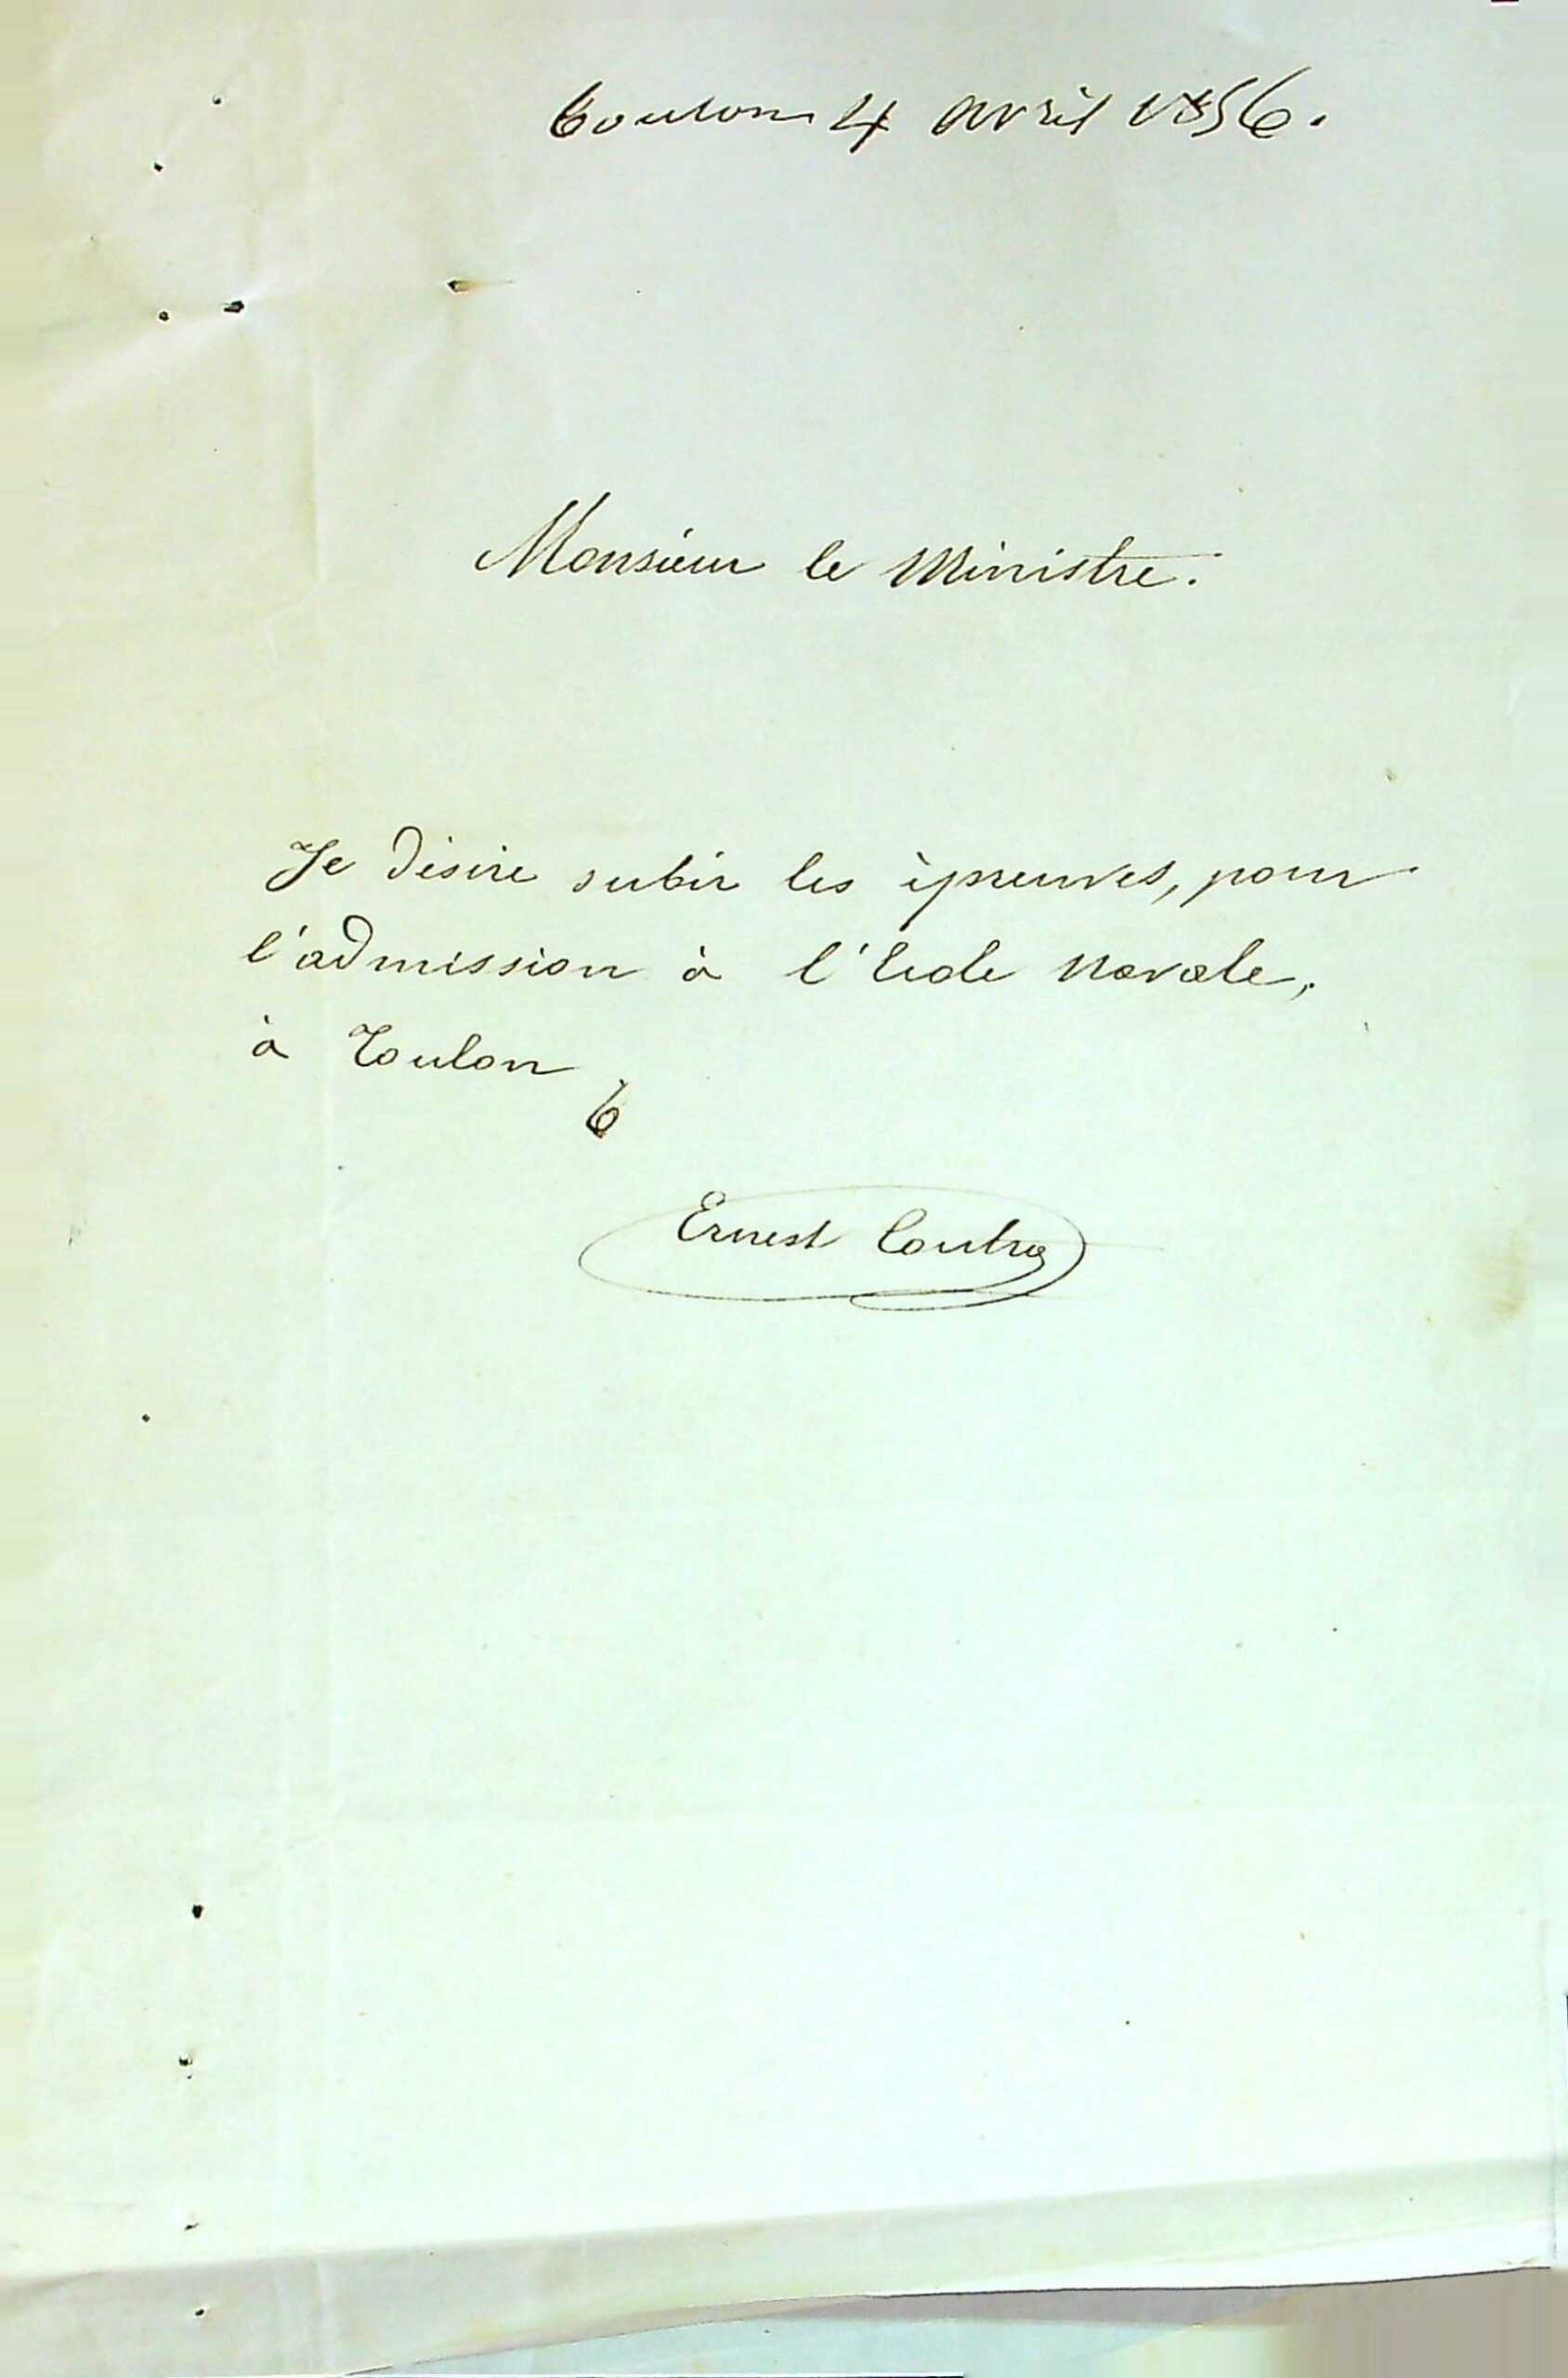 Toulon 4 avril 1856.
Monsieur le Ministre.
Je désire subir les épreuves, pour
l'admission à l'Ecole Navale,
à Toulon
Ernest